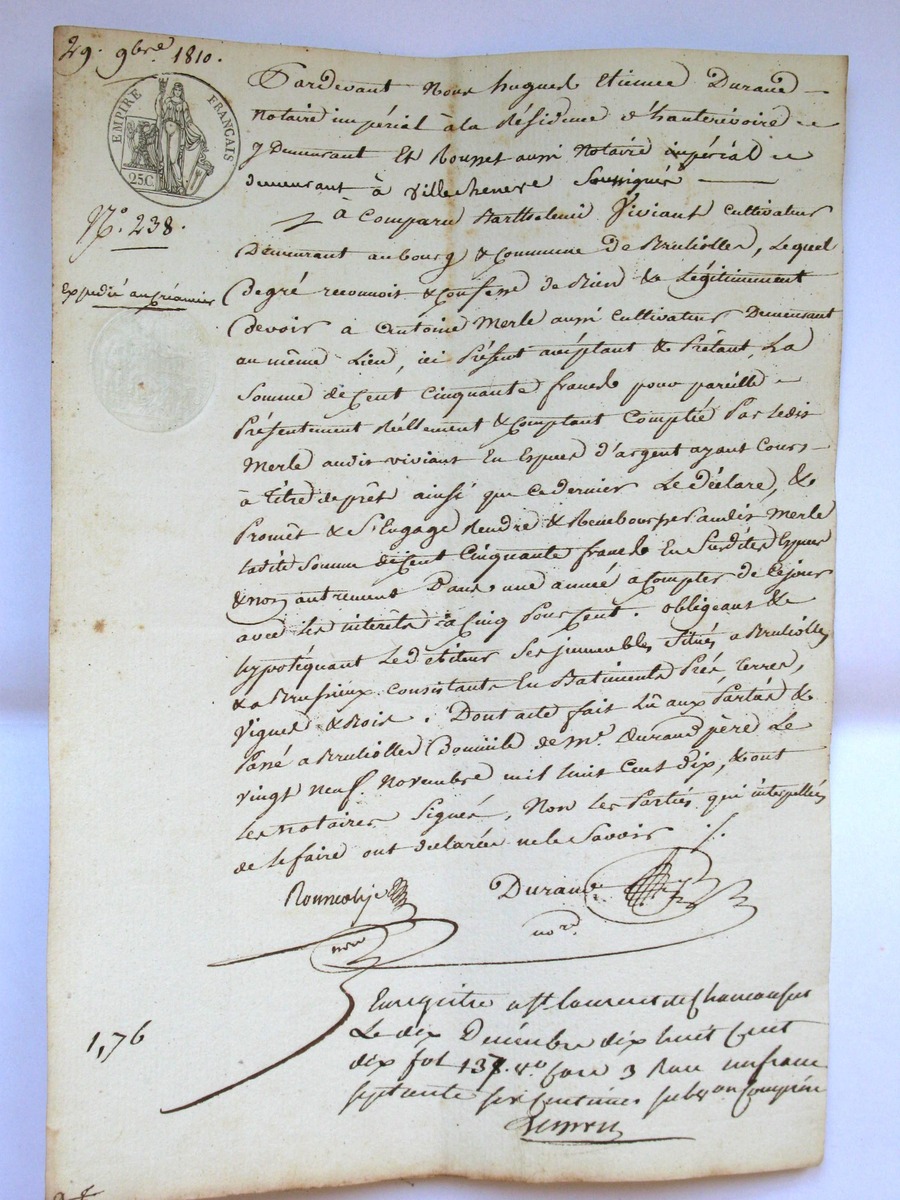 29. 9bre 1810.
EMPIRE FRANÇAIS
25C.
N.° 238.
Expédié au Créancier
Pardevant Nous hugues Etienne Durand
Notaire impérial à la Résidence d'hauterivoire
y Demeurant Et Rounet aussi Notaire impérial
demeurant à Villecheneve Soussignés
à Comparu Barthelemi Viviant Cultivateur
Demeurant au bourg & Commune de Brulioles, Lequel
de gré reconnoit & Confesse de Bien & Légitimement
devoir à antoine Merle aussi Cultivateur Demeurant
au même Lieu, ici Présent acceptant & Prêtant, La
Somme de Cent Cinquante francs pour pareille
Présentement Réellement & Comptant Comptée Par ledit
Merle audit viviant En Espèces d'argent ayant Cours
à Titre de prêt ainsi que ce dernier Le déclare, &
Promêt & S'Engage Rendre & Rembourser audit Merle
ladite Somme de Cent Cinquante francs En Susdites Espèces
& non autrement Dans une année a Compter de Ce jour
avec les intérêts à Cinq Pour Cent. obligeant &
hypotéquant Le débiteur Ses immeubles Situés a Brulioles
& a Brussieux Consistants En Batiments Prés, Terres,
Vignes & Bois. Dont acte fait Lû aux Parties &
Passé a Brulioles Domicile de Mr. Durand père Le
vingt neuf Novembre mil huit Cent dix, & ont
les Notaires Signés, Non les Parties qui interpellées
de le faire ont declarées ne le Savoir ./.
Durand
nore.
nore
1,76
Enregistré a St laurent de Chamousset
Le dix Decémbre dix huit Cent
dix fol 137. vo Case 3 Reçu un franc
septante six Centimes subon Comprise